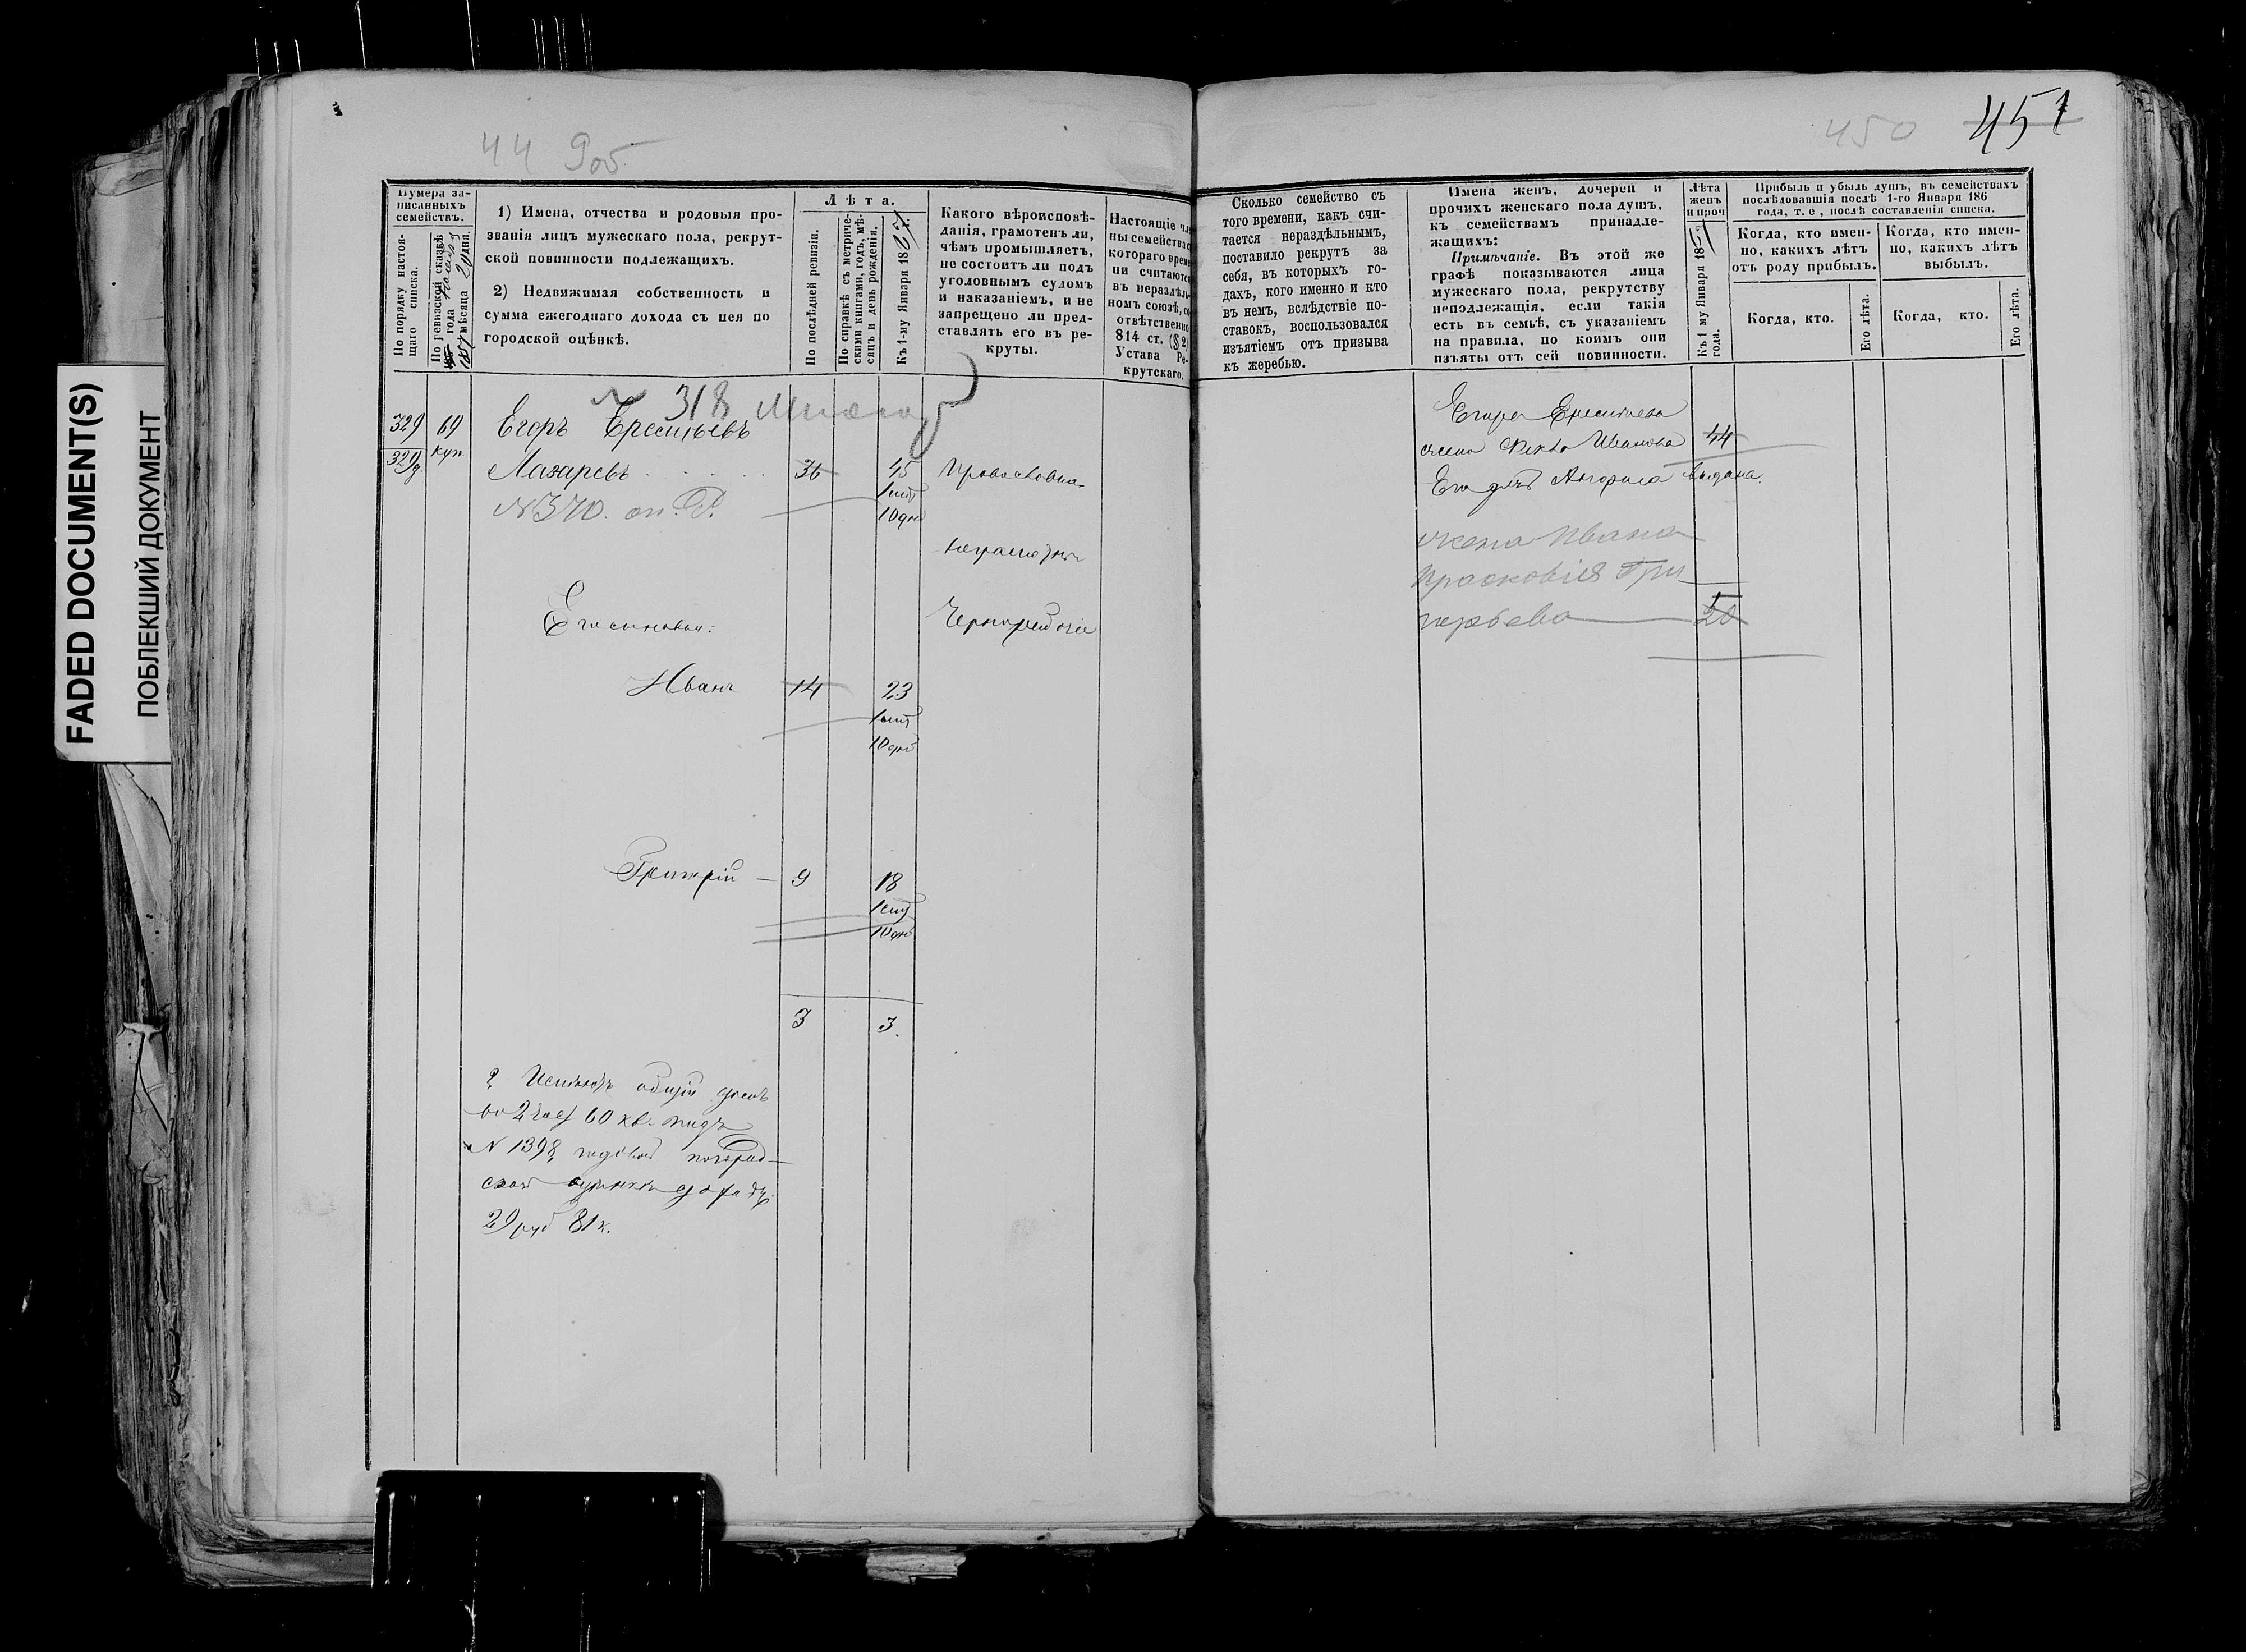 FADED DOCUMENT(S)
ПОБЛЕКШИЙ ДОКУМЕНТ
44 9об
Нумера за-
писанныхъ
семействъ.
По порядку настоя-
щаго списка.
По ревизской сказкѣ
года
мѣсяца дня.
1) Имена, отчества и родовыя про-
званія лицъ мужескаго пола, рекрут-
ской повинности подлежащихъ.
2) Недвижимая собственность и
сумма ежегоднаго дохода съ нея по
городской оцѣнкѣ.
Лѣта.
По послѣдней ревизіи.
По справкѣ съ метриче-
скими книгами, годъ, мѣ-
сяцъ и день рожденія.
Къ 1-му Января 1867
Какого вѣроисповѣ-
данія, грамотенъ ли,
чѣмъ промышляетъ,
не состоитъ ли подъ
уголовнымъ судомъ
и наказаніемъ, и не
запрещено ли пред-
ставлять его въ ре-
круты.
Настоящіе чле
ны семейства съ
котораго време
ни считаются
въ нераздѣль-
номъ союзѣ, со
отвѣтственно
814 ст. (§ 2)
Устава Ре-
крутскаго.
№ 318
329 69 Егоръ Ерестьевъ
329 куп. Лазаревъ 36 45 Православна
№ 370. 1 мѣс
10 дне
неграмотенъ
Его сыновья: Чернорабочіе
Иванъ 14 23
1 мѣс
10 дне
Григорій — 9 18
1 мѣс
10 дне
3 3.
2 Имѣютъ общій домъ
во 2 час 60 кв. подъ
№ 1398 годовой погород-
ской оцѣнкѣ доходъ
29 руб 81 к.
450 451
Сколько семейство съ
того времени, какъ счи-
тается нераздѣльнымъ,
поставило рекрутъ за
себя, въ которыхъ го-
дахъ, кого именно и кто
въ немъ, вслѣдствіе по-
ставокъ, воспользовался
изъятіемъ отъ призыва
къ жеребью.
Имена женъ, дочерей и
прочихъ женскаго пола душъ,
къ семействамъ принадле-
жащихъ:
Примѣчаніе. Въ этой же
графѣ показываются лица
мужескаго пола, рекрутству
неподлежащія, если такія
есть въ семьѣ, съ указаніемъ
на правила, по коимъ они
изъяты отъ сей повинности.
Лѣта
женъ
и проч
Къ 1 му Января 186
года.
Прибыль и убыль душъ, въ семействахъ
послѣдовавшія послѣ 1-го Января 186
года, т. е., послѣ составленія списка.
Когда, кто имен-
но, какихъ лѣтъ
отъ роду прибылъ.
Когда, кто имен-
но, какихъ лѣтъ
выбылъ.
Когда, кто.
Его лѣта.
Когда, кто.
Его лѣта.
Егора Ерестьева
жена Фекла Иванова 44
Его дочь выдана.
жена Ивана
Прасковія Гри
горьева 20